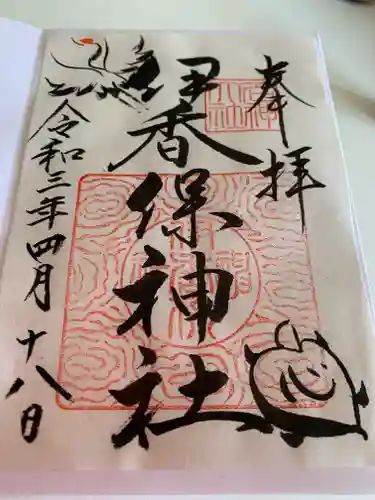 奉拝
伊香保神社
令和三年四月十八日